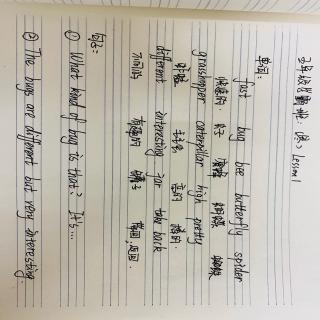 Lesson 1
单词:
fast bug bee butterfly spider
快速的 虫子 蜜蜂 蝴蝶 蜘蛛
grasshopper caterpillar high pretty
蚱蜢 毛毛虫 高的
different interesting jar take back
不同的 有趣的 罐子 带回,返回
句子:
① What kind of bug is that? It's...
② The bugs are different but very interesting.